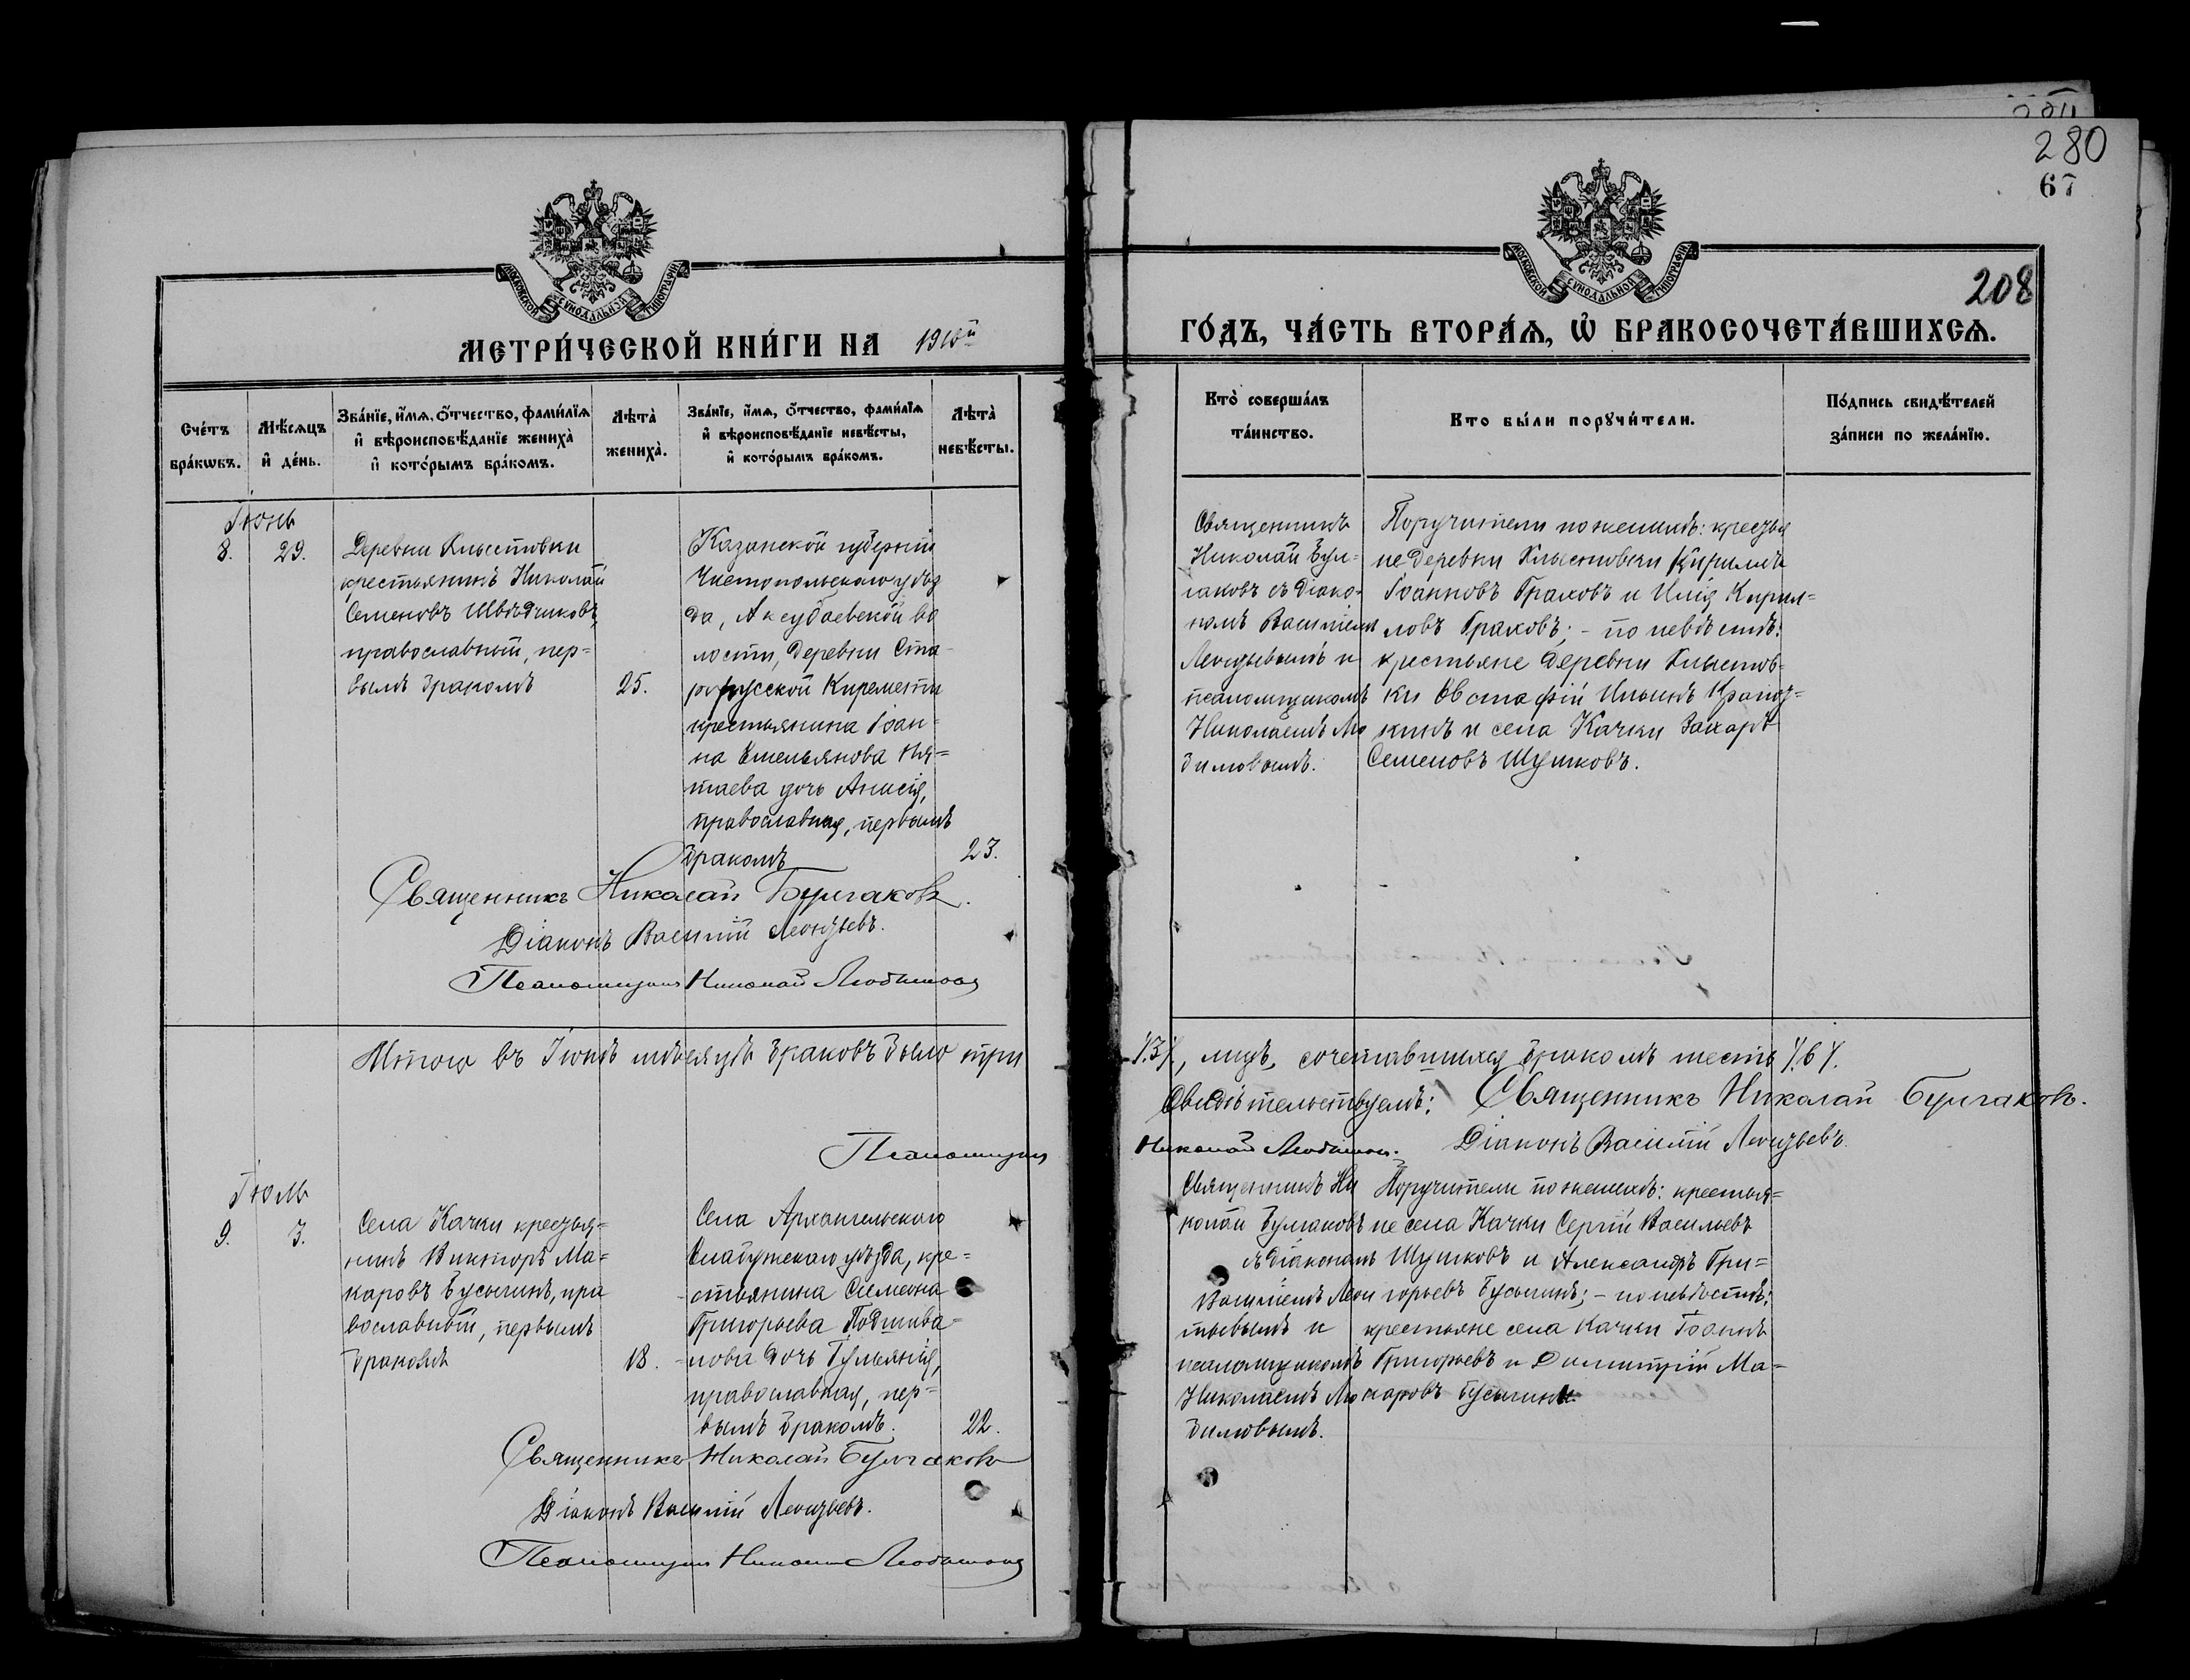 280
67
208
МОСКОВСКОЙ СѴНОДАЛЬНОЙ ТИПОГРАФІИ
МОСКОВСКОЙ СѴНОДАЛЬНОЙ ТИПОГРАФІИ
МЕТРИ́ЧЕСКОЙ КНИ́ГИ НА 1910й
ГО́ДЪ, ЧА́СТЬ ВТОРА́Ѧ, Ѡ҆ БРАКОСОЧЕТА́ВШИХСѦ.
Сче́тъ бра́кѡвъ.
Мѣ́сѧцъ и҆ де́нь.
Зва́нїе, и҆́мѧ, ѻ҆́тчество, фами́лїѧ и҆ вѣроисповѣ́данїе жениха̀ и҆ кото́рымъ бра́комъ.
Лѣта̀ жениха̀.
Зва́нїе, и҆́мѧ, ѻ҆́тчество, фами́лїѧ и҆ вѣроисповѣ́данїе невѣ́сты, и҆ кото́рымъ бра́комъ.
Лѣта̀ невѣ́сты.
Кто̀ соверша́лъ та́инство.
Кто бы́ли порꙋчи́тели.
По́дпись свидѣ́телей за́писи по жела́нїю.
Іюнь
8. 29.
Деревни Клыстовки
крестьянинъ Николай
Семеновъ Швѣдчиковъ,
православный, пер=
вымъ бракомъ
25.
Казанской губерніи
Чистопольскаго уѣз
да, Аксубаевской во
лости, деревни Ста-
рорусской Киремети
крестьянина Іоан=
на Емельянова
таева дочь Анисія,
православная, первымъ
бракомъ
23.
Священникъ
Николай Бул=
гаковъ съ діако-
номъ Василіемъ
Леонтьевымъ и
псаломщикомъ
Николаемъ Лю
бимовымъ.
Поручители по женихѣ: крестья
не деревни Клыстовки Кириллъ
Іоанновъ Граховъ и Илія Кирил=
ловъ Граховъ; - по невѣстѣ:
крестьяне деревни Клыстов-
ки Евстафій Ильинъ
кинъ и села Качки Захаръ
Семеновъ Шушковъ.
Священникъ Николай Булгаковъ.
Діаконъ Василій Леонтьевъ.
Псаломщикъ Николай Любимовъ
Итого въ Іюнѣ мѣсяцѣ браковъ было три
/.3/., лицъ, сочетавшихся бракомъ шесть /.6/.
Свидѣтельствуемъ: Священникъ Николай Булгаковъ.
Діаконъ Василій Леонтьевъ.
Псаломщикъ Николай Любимовъ.
Іюль
9. 3.
Села Качки крестья=
нинъ Викторъ Ма=
каровъ Бусыгинъ, пра
вославный, первымъ
бракомъ
18.
Села Архангельскаго
Елабужскаго уѣзда, кре=
стьянина Симеона
Григорьева Подшива=
лова дочь Гульянія,
православная, пер=
вымъ бракомъ.
22.
Священникъ Ни
колай Булгаковъ
съ діакономъ
Василіемъ Леон
тьевымъ и
псаломщикомъ
Николаемъ Лю
бимовымъ.
Поручители по женихѣ: крестья=
не села Качки Сергій Васильевъ
Шушковъ и Александръ Гри=
горьевъ Бусыгинъ; - по невѣстѣ:
крестьяне села Качки Іоаннъ
Григорьевъ и Димитрій Ма=
каровъ Бусыгины
Священникъ Николай Булгаковъ
Діаконъ Василій Леонтьевъ.
Псаломщикъ Николай Любимовъ